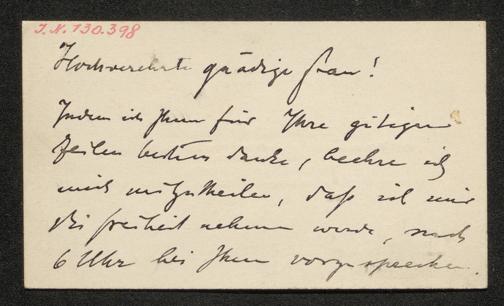 J. N. 130.398
Hochverehrte gnädige Frau!
Indem ich Ihnen für Ihre gütigen
Zeilen bestens danke, beehre ich
mich mitzutheilen, daß ich mir
die Freiheit nehmen werde, nach
6 Uhr bei Ihnen vorzusprechen.